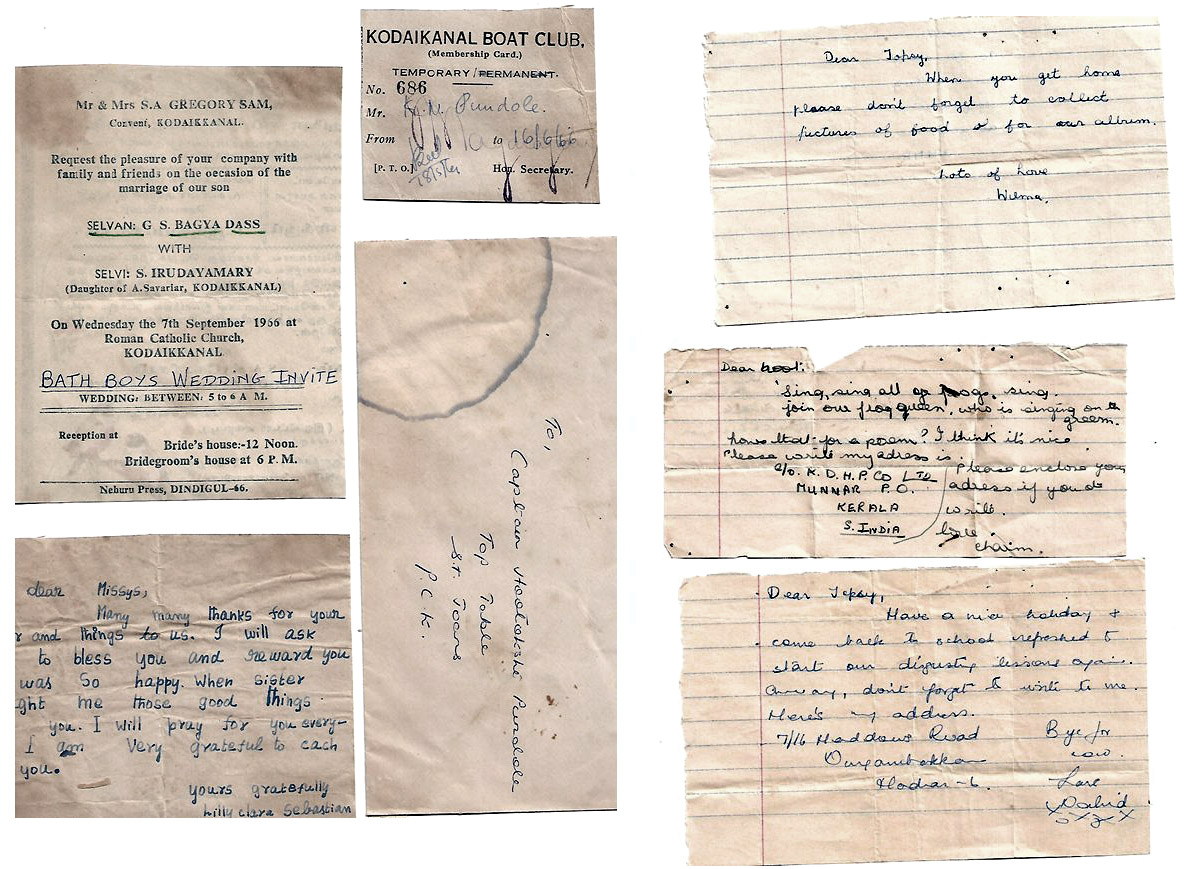 Mr & Mrs S.A GREGORY SAM,
Convent, KODAIKKANAL.
Request the pleasure of your company with
family and friends on the occasion of the
marriage of our son
SELVAN: G S. BAGYA DASS
WITH
SELVI: S. IRUDAYAMARY
(Daughter of A.Savariar, KODAIKKANAL)
On Wednesday the 7th September 1966 at
Roman Catholic Church,
KODAIKKANAL
BATH BOYS WEDDING INVITE
WEDDING: BETWEEN: 5 to 6 A M.
Reception at
Bride's house:-12 Noon.
Bridegroom's house at 6 P. M.
Nehuru Press, DINDIGUL-66.
dear Missys,
Many many thanks for your
and things to us. I will ask
to bless you and reward you
was so happy. When sister
ght me those good things.
you. I will pray for you every-
I am Very grateful to each
you.
yours gratefully
Lilly clara Sebastian
KODAIKANAL BOAT CLUB,
(Membership Card.)
TEMPORARY/PERMANENT.
No. 686
Mr. Pundole.
From to 16/6/66
[P. T. O.] Hon. Secretary.
To,
Captain Pundole
Top Table
St. Joans
P.C.K.
Dear Topsy,
When you get home
please don't forget to collect
pictures of food s for our album.
Lots of love
Wilma.
Dear
Sing, sing all frogs, sing.
join our frog queen, who is singing on th
green.
hows that for a poem? I think it's nice
Please write my adress is.
C/o. K. D. H. P. Co LTD
MUNNAR P.O.
KERALA
S. INDIA
Please enclose your
adress if you do
write.
Dear Topsy,
Have a nice holiday &
come back to school refreshed to
start our disgusting lessons again.
Anyway, don't forget to write to me.
Here's my address.
7/16 Haddows Road
Madras-6.
Bye for
now.
Love